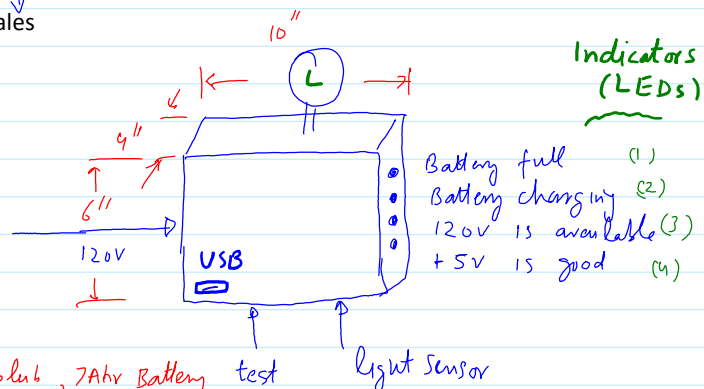 ales
10"
L
Indicators
(LEDs)
4"
6"
120V
USB
Battery full (1)
Battery charging (2)
120V is available (3)
+5v is good (4)
7Ahr Battery
test
light sensor